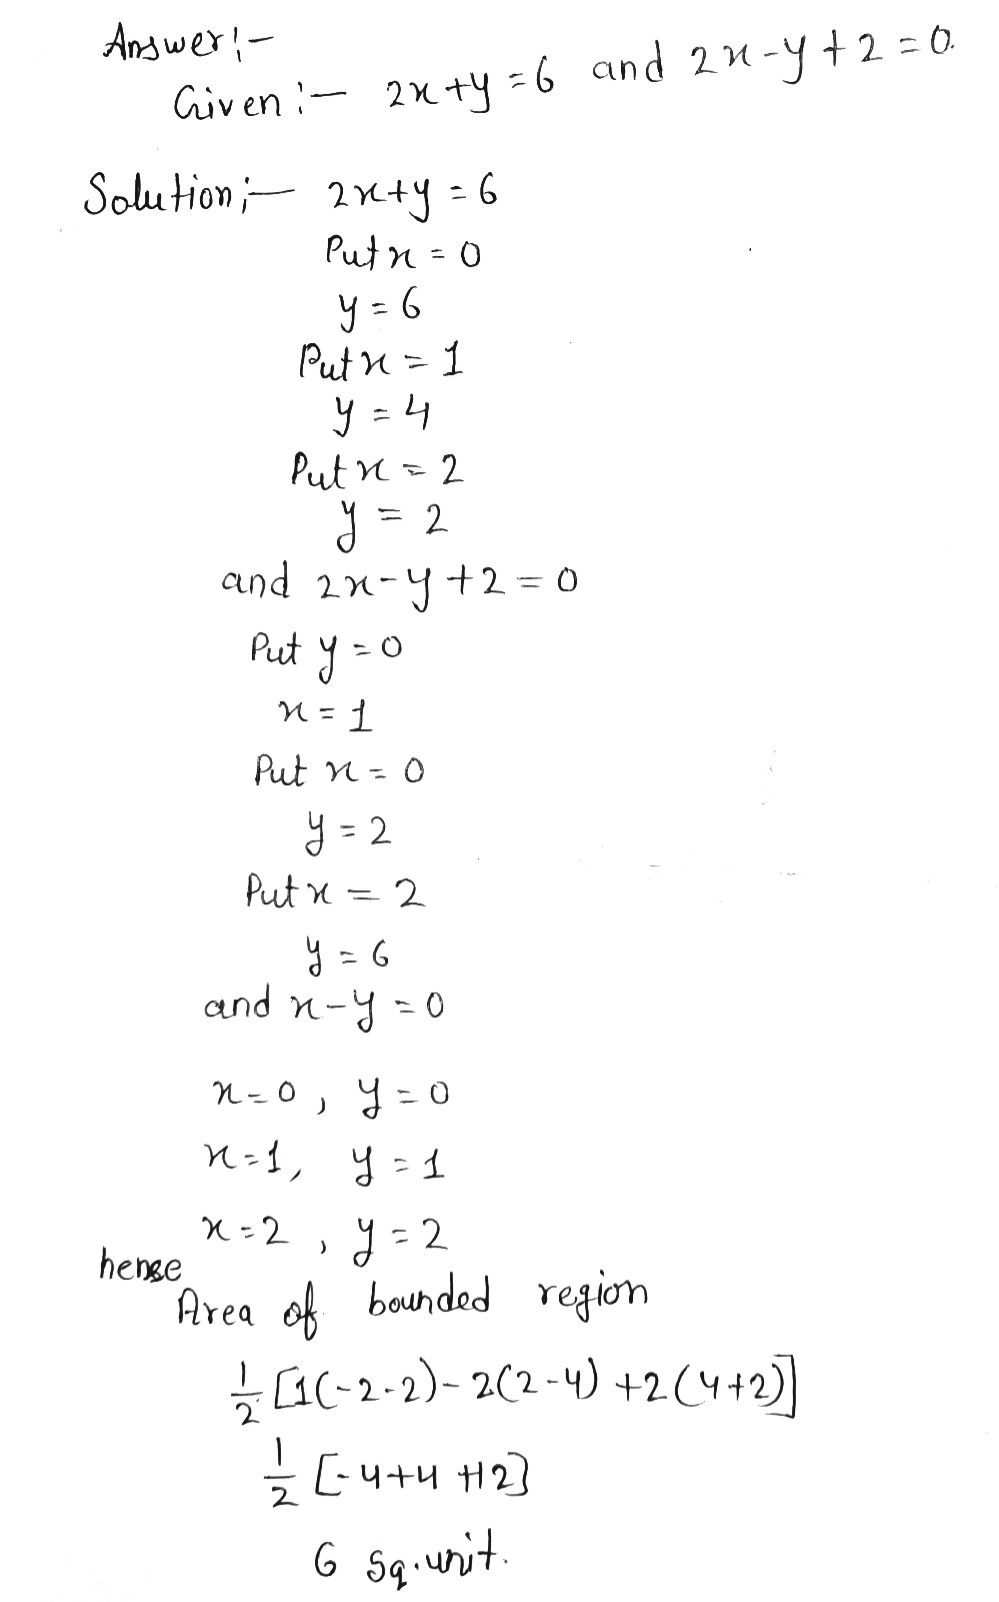 Answer:-
Given:- 2x+y=6 and 2x-y+2=0.
Solution:- 2x+y=6
Put x=0
y=6
Put x=1
y=4
Put x=2
y=2
and 2x-y+2=0
Put y=0
x=1
Put x=0
y=2
Put x=2
y=6
and x-y=0
x=0, y=0
x=1, y=1
x=2, y=2
hense
Area of bounded region
1/2 [1(-2-2)-2(2-4)+2(4+2)]
1/2 [-4+4+12]
6 sq.unit.